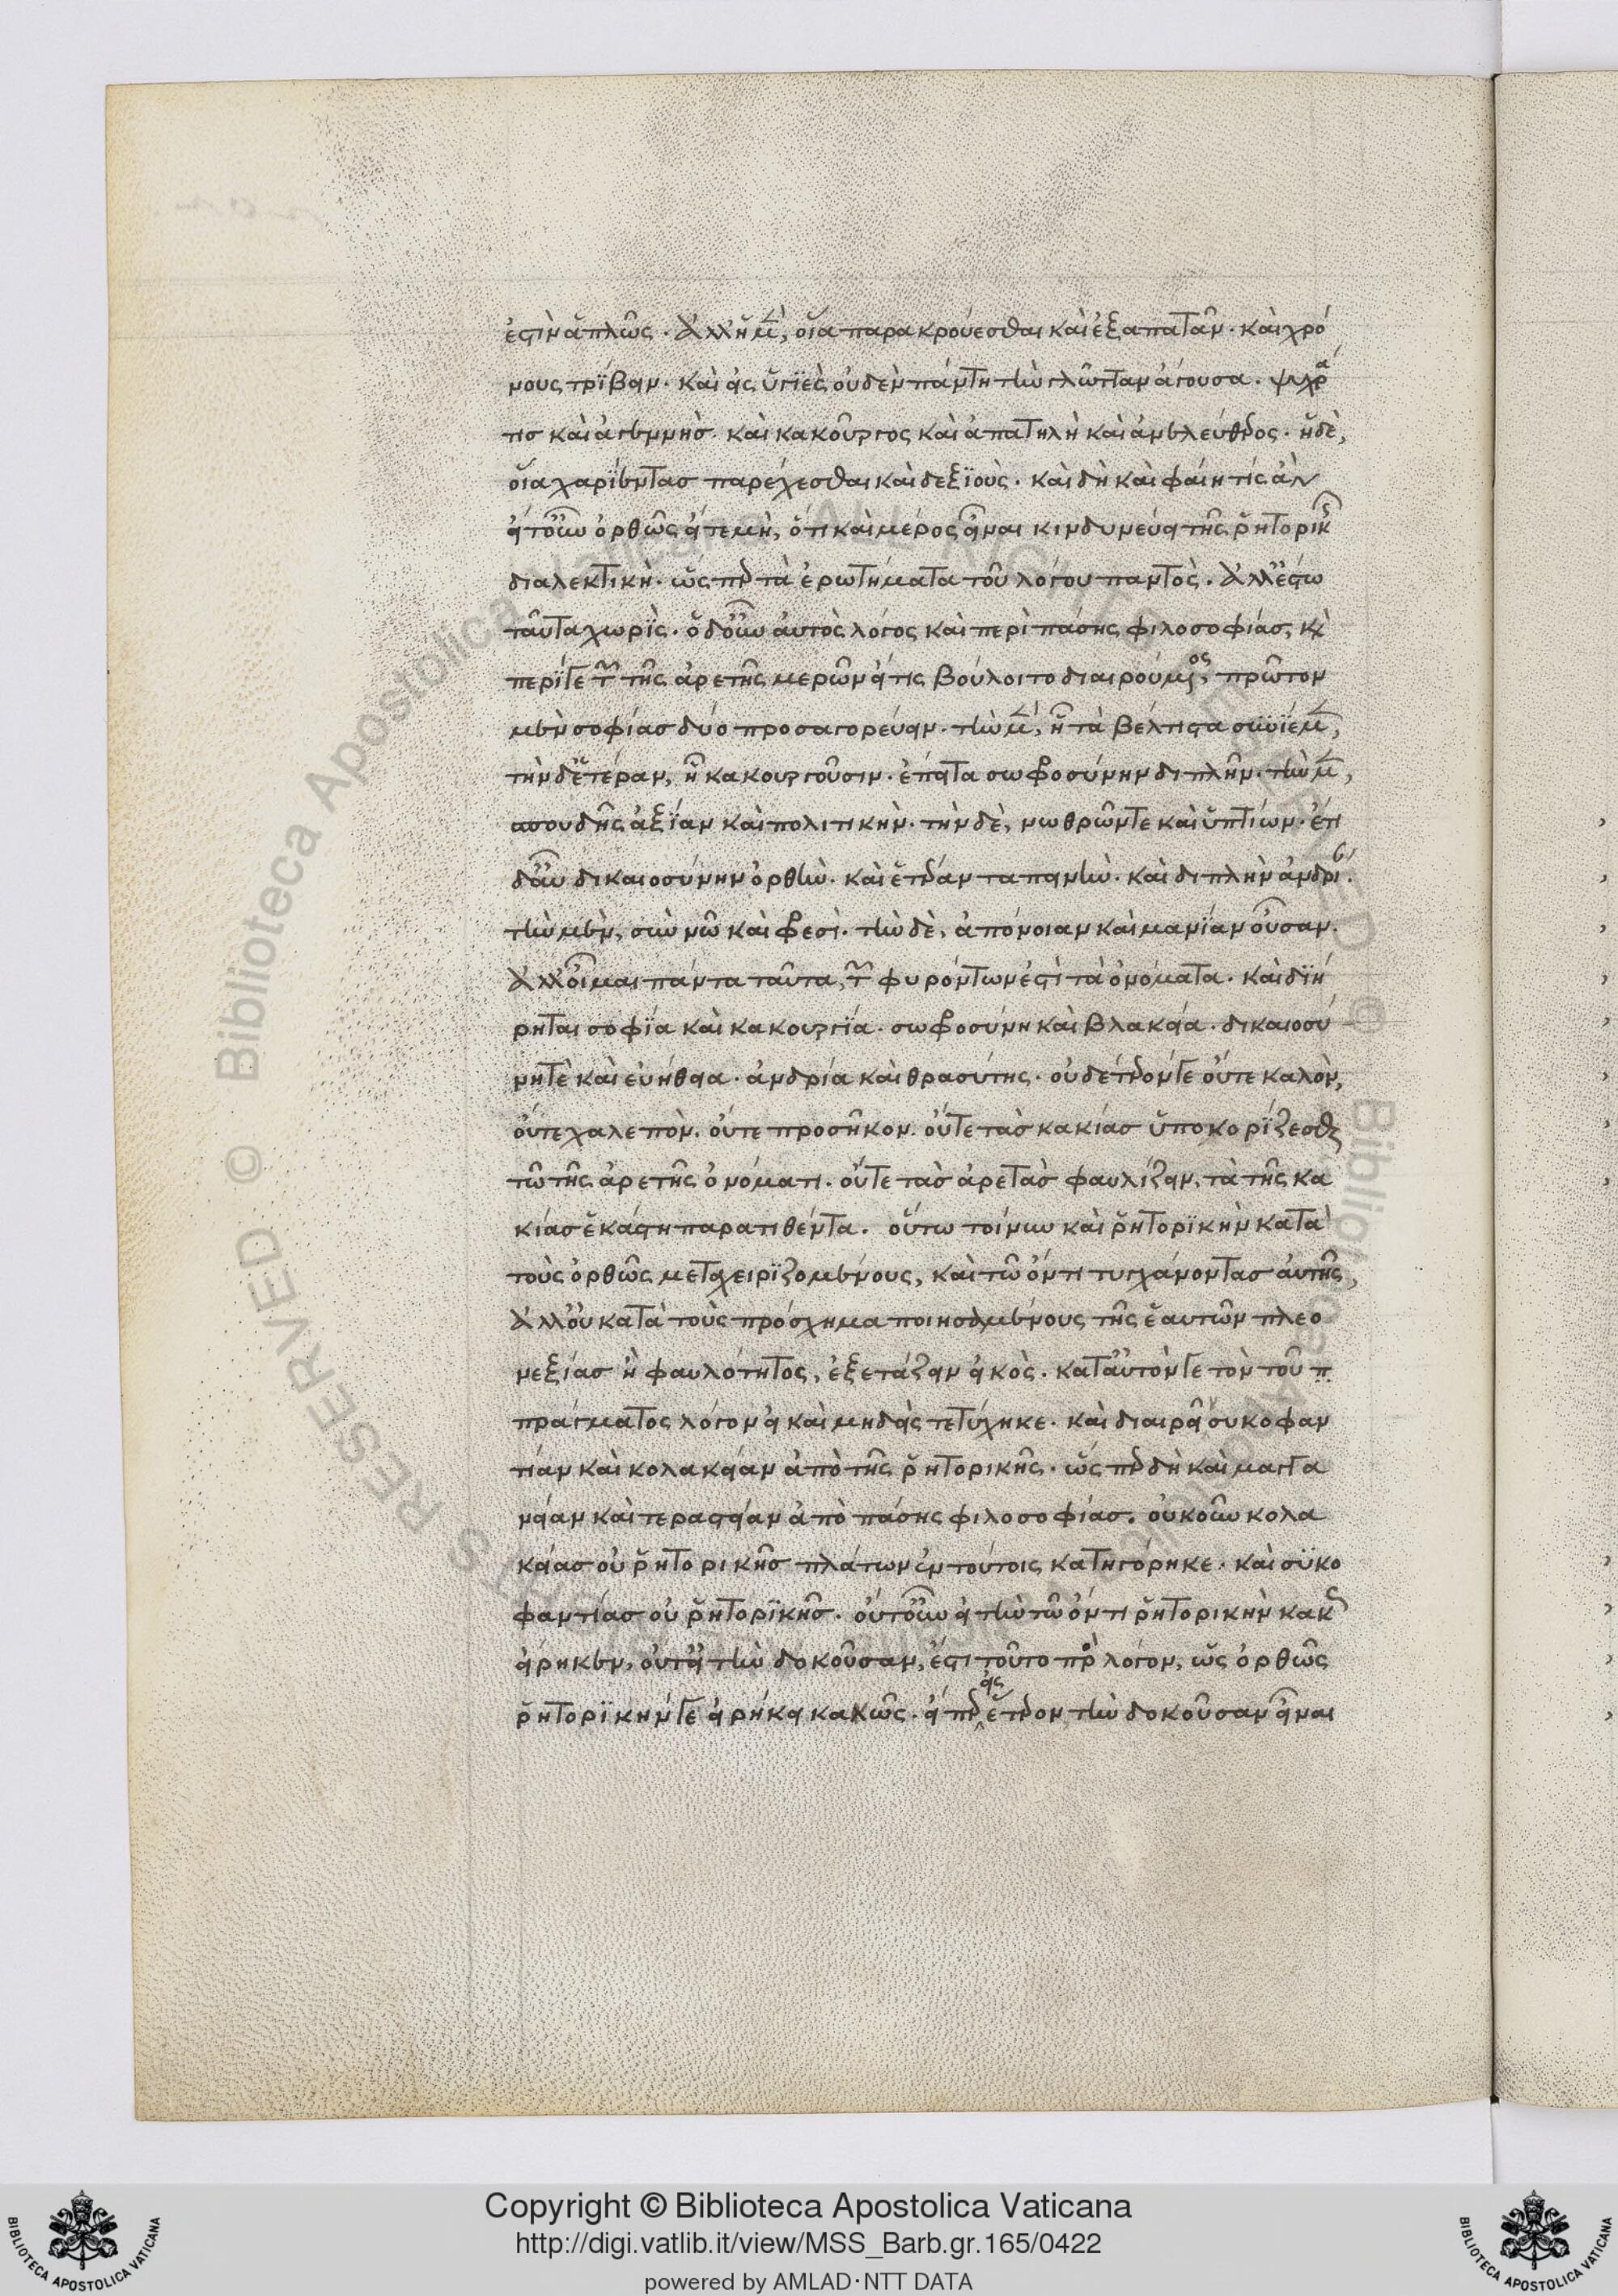 ἐστὶν ἁπλῶς. ἀλλ' ἡ μὲν, οἵα παρακρούεσθαι καὶ ἐξαπατᾶν. καὶ χρό
νους τρίβειν. καὶ εἰς ὑγιὲς οὐδὲν πάντη τὴν γλῶτταν ἄγουσα. ψυχρά
τις καὶ ἀγεννὴς καὶ κακοῦργος καὶ ἀπατηλὴ καὶ ἀνελεύθερος. ἡ δὲ,
οἵα χαρίεντας παρέχεσθαι καὶ δεξιοὺς. καὶ δὴ καὶ φαίη τίς ἂν
εἴτ' οὖν ὀρθῶς εἴτε μὴ, ὅτι καὶ μέρος εἶναι κινδυνεύει τῆς ῥητορικῆς
διαλεκτικὴ. ὥσπερ τὰ ἐρωτήματα τοῦ λόγου παντὸς. ἀλλ' ἔστω
ταῦτα χωρὶς. ὁ δ' οὖν αὐτὸς λόγος καὶ περὶ πάσης φιλοσοφίας, καὶ
περί γε τῶν τῆς ἀρετῆς μερῶν εἴ τις βούλοιτο διαιρούμενος, πρῶτον
μὲν σοφίας δύο προσαγορεύειν. τὴν μὲν, ᾗ τὰ βέλτιστα συνίεμεν,
τὴν δ' ἑτέραν, ᾗ κακουργοῦσιν. ἔπειτα σωφροσύνην διπλῆν. τὴν μὲν,
σπουδῆς ἀξίαν καὶ πολιτικὴν. τὴν δὲ, νωθρῶν τε καὶ ὑπτίων. ἔτι
δ' αὖ δικαιοσύνην ὀρθὴν. καὶ ἑτέραν ταπεινὴν. καὶ διπλὴν ἀνδρίαν.
τὴν μὲν, σὺν νῷ καὶ φρεσὶ. τὴν δὲ, ἀπόνοιαν καὶ μανίαν οὖσαν.
ἀλλ' οἶμαι πάντα ταῦτα, τῶν φυρόντων ἐστὶ τὰ ὀνόματα. καὶ διή
ρηται σοφία καὶ κακουργία. σωφροσύνη καὶ βλακεία. δικαιοσύ
νη τὲ καὶ εὐήθεια. ἀνδρία καὶ θρασύτης. οὐδέτερόν γε οὔτε καλὸν,
οὔτε χαλεπὸν. οὔτε προσῆκον. οὔτε τὰς κακίας ὑποκορίζεσθαι
τῷ τῆς ἀρετῆς ὀνόματι. οὔτε τὰς ἀρετὰς φαυλίζειν, τὰ τῆς κα
κίας ἑκάστη παρατιθέντα. οὕτω τοίνυν καὶ ῥητορικὴν κατὰ
τοὺς ὀρθῶς μεταχειριζομένους, καὶ τῷ ὄντι τυγχάνοντας αὐτῆς,
ἀλλ' οὐ κατὰ τοὺς πρόσχημα ποιησαμένους τῆς ἑαυτῶν πλεο
νεξίας ἢ φαυλότητος, ἐξετάζειν εἰκὸς. κατ' αὐτόν γε τὸν τοῦ π
πράγματος λόγον εἰ καὶ μηδεὶς τετύχηκε. καὶ διαιρεῖ συκοφαν
τίαν καὶ κολακείαν ἀπὸ τῆς ῥητορικῆς. ὥσπερ δὴ καὶ μαγγα
νείαν καὶ τερατείαν ἀπὸ πάσης φιλοσοφίας. οὐκοῦν κολα
κείας οὐ ῥητορικῆς πλάτων ἐν τούτοις κατηγόρηκε. καὶ συκο
φαντίας οὐ ῥητορικῆς. οὔτ' οὖν εἰ τὴν τῷ ὄντι ῥητορικὴν κακῶς
εἴρηκεν, οὔτ' εἰ τὴν δοκοῦσαν, ἔστι τοῦτο πρὸ λόγον, ὡς ὀρθῶς
ῥητορικήν γε εἰρήκει κακῶς. εἴπερ εἰς ἕτερον τὴν δοκοῦσαν εἶναι
Copyright © Biblioteca Apostolica Vaticana
http://digi.vatlib.it/view/MSS_Barb.gr.165/0422
powered by AMLAD·NTT DATA